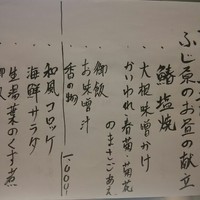 ふじ原のお昼の献立
鰆塩焼
・大根味噌かけ
かいわれ・春菊・菊花
のまさごあえ
御飯
お味噌汁
香の物
一、六〇〇円
・和風コロッケ
海鮮サラダ
・生湯葉のくず煮
御飯